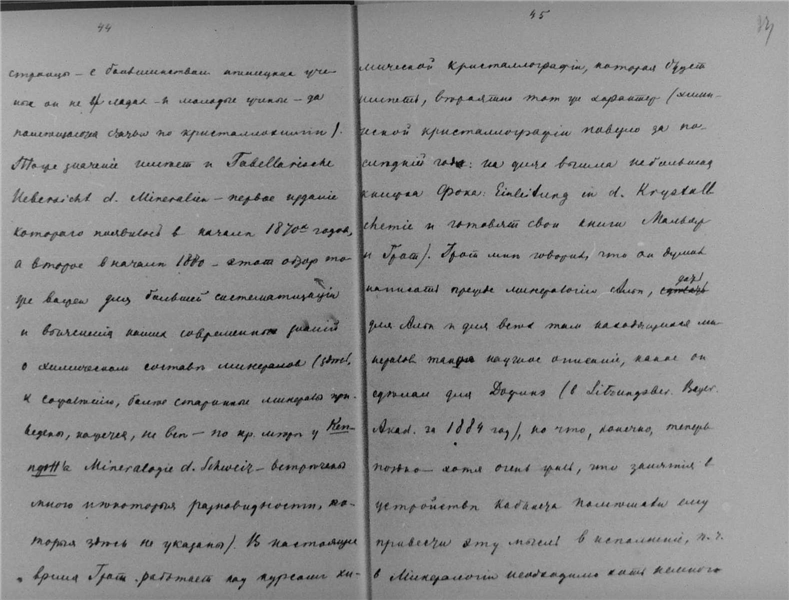 44
страницы – с большинством немецких уче-
ных он не в ладах – и молодые ученые – да
помещающая статьи по кристаллохимии).
Тоже значение имеет и Tabellarische
Uebersicht d. Mineralien – первое издание
которого появилось в начале 1870х годов,
а второе в начале 1880 – этот обзор то-
же важен для большей систематизаціи
и выяснения наших современных знаний
о химическом составе минералов (здесь,
к сожалению, более старинные минералы при-
ведены, кажется, не все – по кр. мере у Кен-
нготт'а Mineralogie d. Schweiz – встречены
много некоторыя разновидности, ко-
торыя здесь не указаны). В настоящее
время Грот работает над курсами хи-
45
мической кристаллографіи, которая будет
иметь, вероятно тот же характер (хими-
ческой кристаллографіи повезло за по-
следний год: на днях вышла небольшая
книжка Фока: Einleitung in d. Krystall
chemie и готовят свои книги Мальяр
и Грот). Грот мне говорил, что он думал
написать прежде минералогію Альп,
дать
для Альп и для всех там находящихся ми-
нералов такое научное описаніе, какое он
сделал для Дофине (в Sitzungsber. Bayer.
Akad. за 1884 год), но что, конечно, теперь
поздно – хотя очень жаль, что занятія в
устройстве кабинета помешали ему
привести эту мысль в исполненіе, п.ч.
в Минералогіи необходимо хоть немного